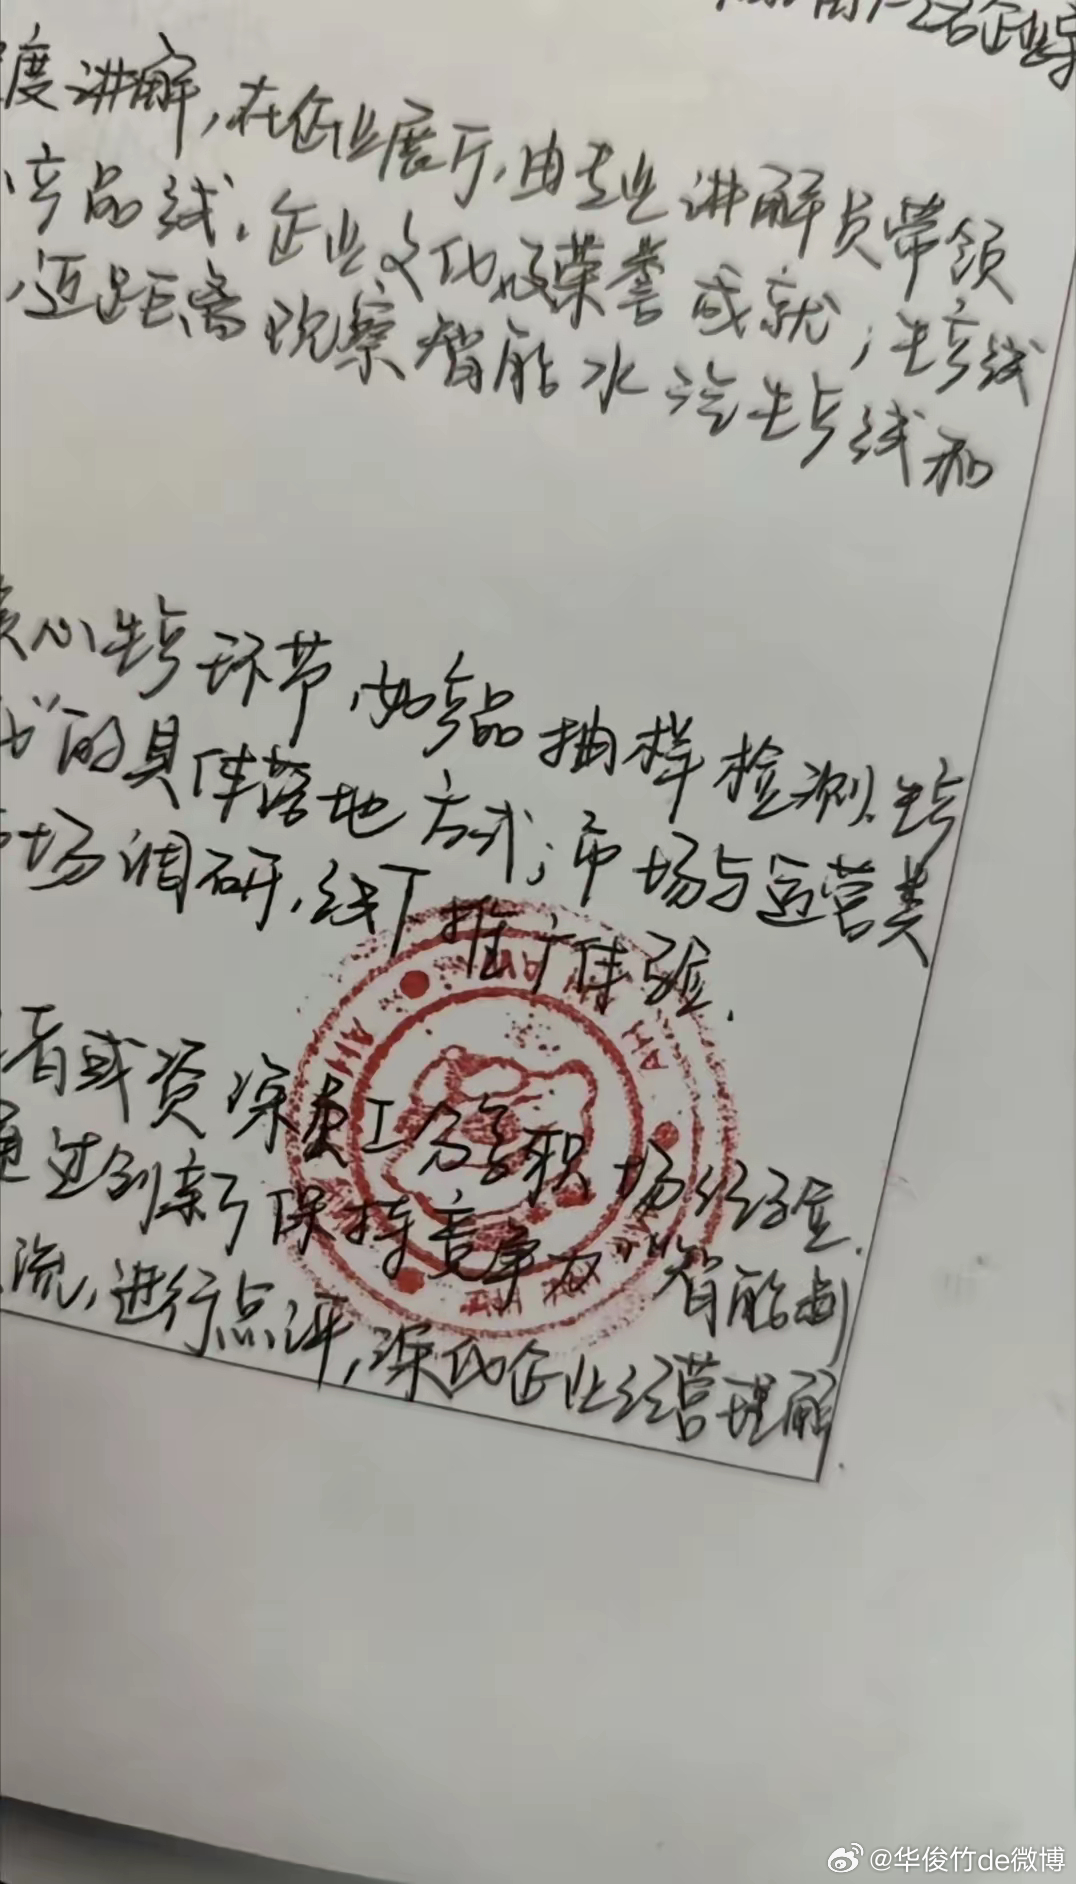 名企业
度讲解，在企业展厅，由专业讲解员带领
产品线、企业文化及荣誉成就；生产线
，近距离观察智能水 生产线和
心生产环节，如产品抽样检测、生产
”的具体落地方式；市场与运营类
场调研，线下推广体验．
者或资深员工分享职场经验．
通过创新保持竞争力”“智能制
流，进行点评，深化企业经营理解．
AH
AH
@华俊竹de微博